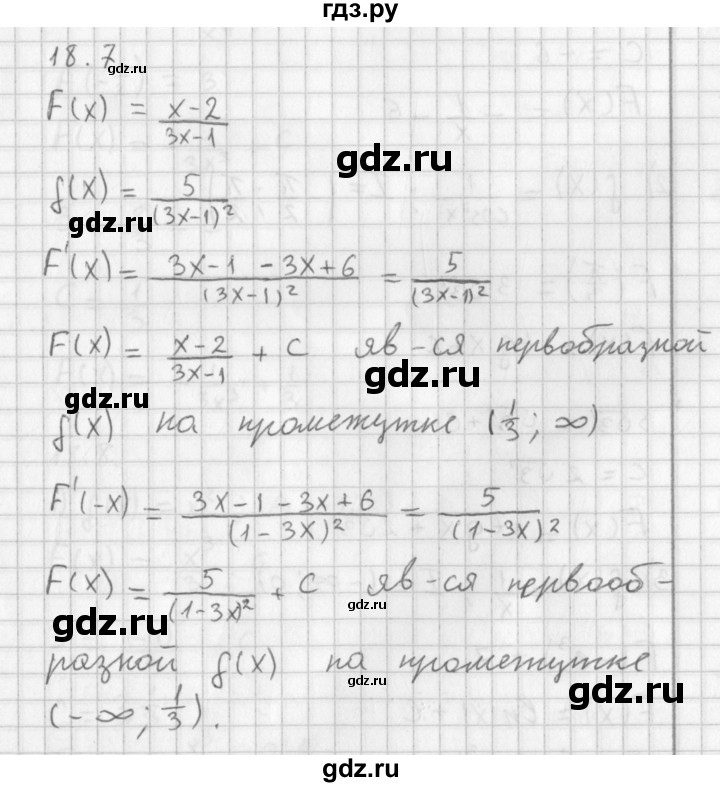 гдз.ру
18.7
gdz.ru
F(x) = \frac{x-2}{3x-1}
gdz.ru
f(x) = \frac{5}{(3x-1)^2}
gdz.ru
F'(x) = \frac{3x-1-3x+6}{(3x-1)^2} = \frac{5}{(3x-1)^2}
F(x) = \frac{x-2}{3x-1} + C яв-ся первобразной
gdz.ru
gdz.ru
f(x) на промежутке (\frac{1}{3}; ∞)
F'(-x) = \frac{3x-1-3x+6}{(1-3x)^2} = \frac{5}{(1-3x)^2}
F(x) = \frac{5}{(1-3x)^2} + C яв-ся первооб-
gdz.ru
gdz.ru
разной f(x) на промежутке
gdz.ru
gdz.ru
(-∞; \frac{1}{3}).
gdz.ru